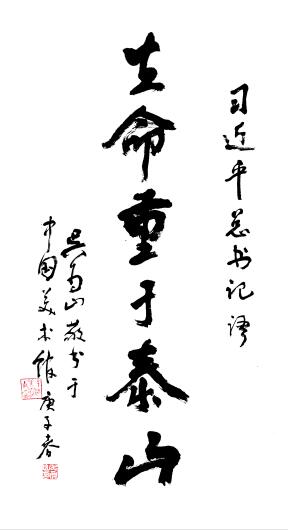 习近平总书记语
生命重于泰山
吴为山敬书于
中国美术馆庚子春